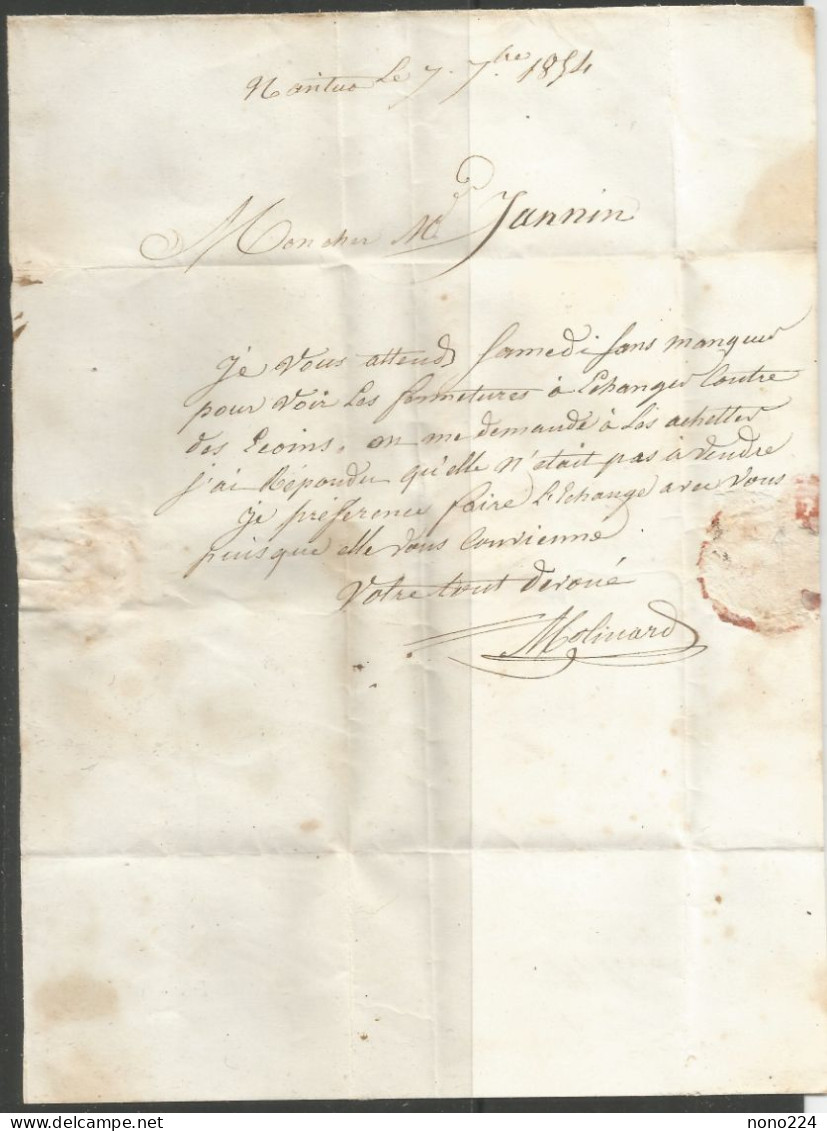 Nantua Le 7. 7bre 1854
Mon cher Mr Jannin
Je Vous attends Samedi sans manquer
pour voir les fermetures à Echanger Contre
des Ecoins. on me demande à les achetter
j'ai Répondu qu'elle n'était pas à vendre
Je préference faire l'Echange avec Vous
puisque elle Vous Convienne
Votre tout devoué
Molinard
nono224